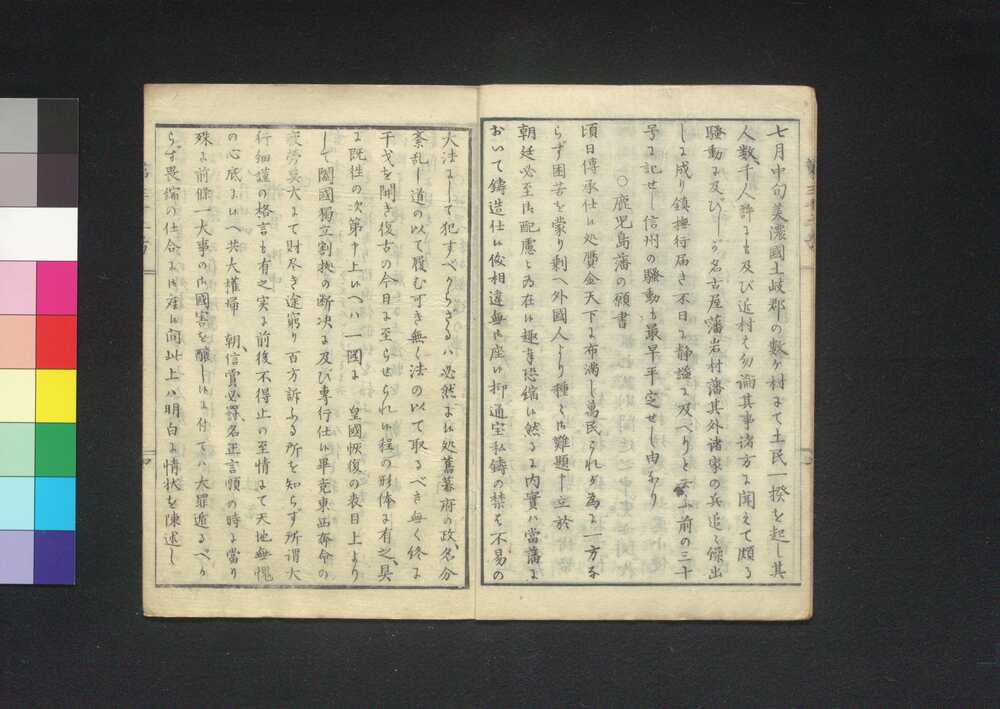 七月中旬美濃國土岐郡の数ヶ村にて土民一揆を起し其
人数千人許にも及び近村ハ勿論其事諸方に聞えて頗る
騒動に及びしが名古屋藩岩村藩其外諸家の兵追々繰出
しに成り鎮撫行届き不日に静謐に及べりと云ふ前の三十
号に記せし信州の騒動も最早平定せし由なり
○鹿児島藩の願書
頃日傳承仕候処贋金天下に布満し萬民これが為に一方な
らず困苦を蒙り剰へ外國人より種々御難題申立於
朝廷必至御配慮と為在候趣奉恐縮候然るに内實ハ當藩に
おいて鋳造仕候儀相違無御座候抑通宝私鋳の禁ハ不易の
大法にして犯すべからざるハ必然に候処舊幕府の政名分
紊乱し道の以て履む可き無く法の以て取るべき無く終に
干戈を開き復古の今日に至らせられ候程の形体に有之具
に既往の次第申上候へハ一國に 皇國恢復の表目上より
して闔國獨立割拠の断決に及び專行仕候畢竟東西奔命の
疲労莫大にて財尽き途窮り百方訴ふる所を知らず所謂大
行細謹の格言も有之実に前後不得止の至情にて天地無愧
の心底に候へ共大權帰 朝信賞必罰名正言順の時に當り
殊に前條一大事の御國害を醸し候に付てハ大罪遁るべか
らず畏縮の仕合に御座候間此上ハ明白に情状を陳述し